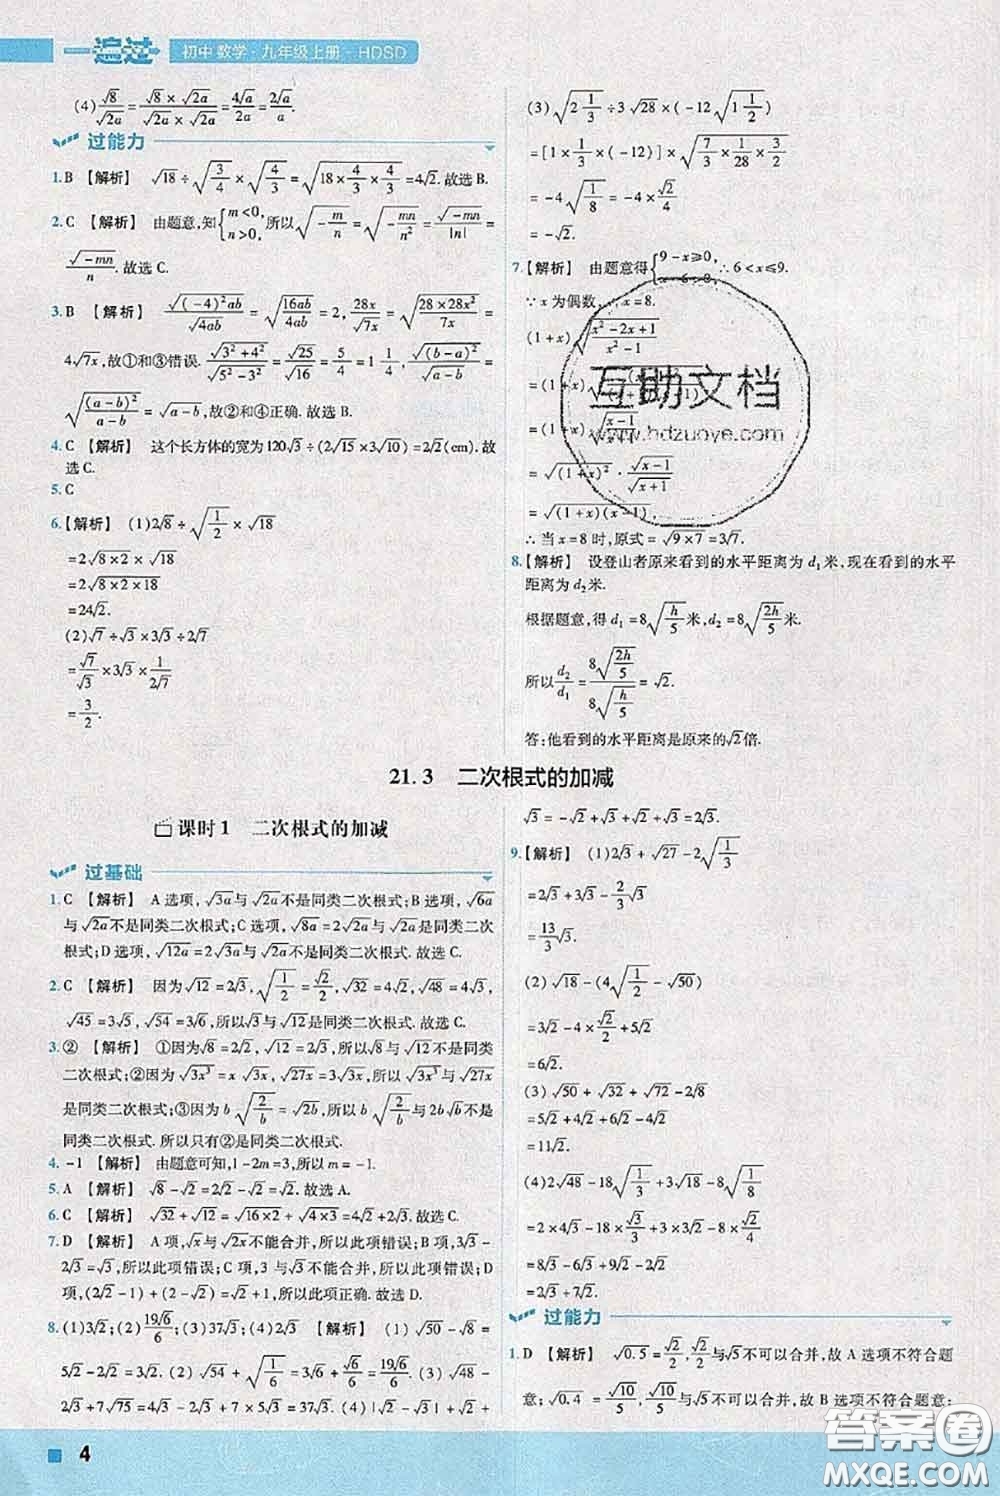 一遍过 初中 数学·九年级上册·HDSD
(4) √8/√(2a) = (√8 × √(2a))/(√(2a) × √(2a)) = 4√a/(2a) = 2√a/a.
过能力
1. B 【解析】 √18 ÷ √(3/4) × √(4/3) = √(18 × 4/3 × 4/3) = 4√2. 故选 B.
2. C 【解析】 由题意,知{m<0, n>0,所以√(-m/n) = √(-mn/n²) = √(-mn)/|n|
= √(-mn)/n. 故选 C.
3. B 【解析】 √((-4)²ab)/√(4ab) = √(16ab/4ab) = 2, 28x/√(7x) = √(28×28x²/7x) =
4√(7x),故①和③错误. √(3²+4²)/√(5²-3²) = √25/√16 = 5/4 = 1 1/4, √((b-a)²)/√(a-b) =
√((a-b)²/(a-b)) = √(a-b),故②和④正确. 故选 B.
4. C 【解析】 这个长方体的宽为 120√3 ÷ (2√15 × 3√10) = 2√2(cm). 故
选 C.
5. C
6. 【解析】 (1) 2√8 ÷ √(1/2) × √18
= 2√(8×2) × √18
= 2√(8×2×18)
= 24√2.
(2) √7 ÷ √3 × 3√3 ÷ 2√7
= √7/√3 × 3√3 × 1/(2√7)
= 3/2.
(3) √(2 1/3) ÷ 3√28 × (-12√(1 1/2))
= [1 × 1/3 × (-12)] × √(7/3 × 1/28 × 3/2)
= -4√(1/8) = -4 × √2/4
= -√2.
7. 【解析】 由题意得{9-x≥0, x-6>0, ∴ 6<x≤9.
∵ x 为偶数, ∴ x=8.
(1+x)√((x²-2x+1)/(x²-1))
= (1+x)
= (1+x)√(x-1)
= √((1+x)²) · √(x-1)/√(x+1)
= √((1+x)(x-1)),
∴ 当 x=8 时,原式 = √(9×7) = 3√7.
8. 【解析】 设登山者原来看到的水平距离为 d₁ 米,现在看到的水平
距离为 d₂ 米.
根据题意,得 d₁ = 8√(h/5) 米, d₂ = 8√(2h/5) 米.
所以 d₂/d₁ = 8√(2h/5)/8√(h/5) = √2.
答:他看到的水平距离是原来的 √2 倍.
互助文档
www.hdzuoye.com
21.3 二次根式的加减
课时 1 二次根式的加减
过基础
1. C 【解析】 A 选项, √(3a) 与 √(2a) 不是同类二次根式;B 选项, √(6a)
与 √(2a) 不是同类二次根式;C 选项, √(8a) = 2√(2a) 与 √(2a) 是同类二次
根式;D 选项, √(12a) = 2√(3a) 与 √(2a) 不是同类二次根式. 故选 C.
2. C 【解析】 因为 √12 = 2√3, √(1/2) = √2/2, √18 = 3√2, √48 = 4√3,
√45 = 3√5, √54 = 3√6,所以 √3 与 √12 是同类二次根式. 故选 C.
3. ② 【解析】 ①因为 √8 = 2√2, √12 = 2√3,所以 √8 与 √12 不是同类
二次根式;②因为 √(3x³) = x√(3x), √(27x) = 3√(3x),所以 √(3x³) 与 √(27x)
是同类二次根式;③因为 b√(2/b) = √(2b),所以 b√(2/b) 与 2b√b 不是
同类二次根式. 所以只有②是同类二次根式.
4. -1 【解析】 由题意可知,1-2m=3,所以 m=-1.
5. A 【解析】 √8 - √2 = 2√2 - √2 = √2. 故选 A.
6. C 【解析】 √32 + √12 = √(16×2) + √(4×3) = 4√2 + 2√3. 故选 C.
7. D 【解析】 A 项, √x 与 √(2x) 不能合并,所以此项错误;B 项, 3√2 -
2√2 = √2,所以此项错误;C 项,3 与 √3 不能合并,所以此项错误;D
项, (2√2-1)+(2-√2) = √2+1,所以此项正确. 故选 D.
8. (1) 3√2; (2) 19√6/6; (3) 37√3; (4) 2√3 【解析】 (1) √50 - √8 =
5√2 - 2√2 = 3√2. (2) √54 + √(1/6) = 3√6 + √6/6 = 19√6/6. (3) √12 +
7√75 = 2√3 + 35√3 = 37√3. (4) |√2-√3|+√2+
√3 = -√2+√3+√2+√3 = 2√3.
9. 【解析】 (1) 2√3 + √27 - 2√(1/3)
= 2√3 + 3√3 - 2/3√3
= 13/3√3.
(2) √18 - (4√(1/2) - √50)
= 3√2 - 4 × √2/2 + 5√2
= 6√2.
(3) √50 + √32 + √72 - 2√8
= 5√2 + 4√2 + 6√2 - 4√2
= 11√2.
(4) 2√48 - 18√(1/3) + 3√18 - 8√(1/8)
= 2 × 4√3 - 18 × √3/3 + 3 × 3√2 - 8 × √2/4
= 8√3 - 6√3 + 9√2 - 2√2
= 2√3 + 7√2.
过能力
1. D 【解析】 √0.5 = √2/2, √2/2 与 √5 不可以合并,故 A 选项不符合题
意; √0.4 = √10/5, √10/5 与 √5 不可以合并,故 B 选项不符合题意;
4
答案圈
MXQE.COM